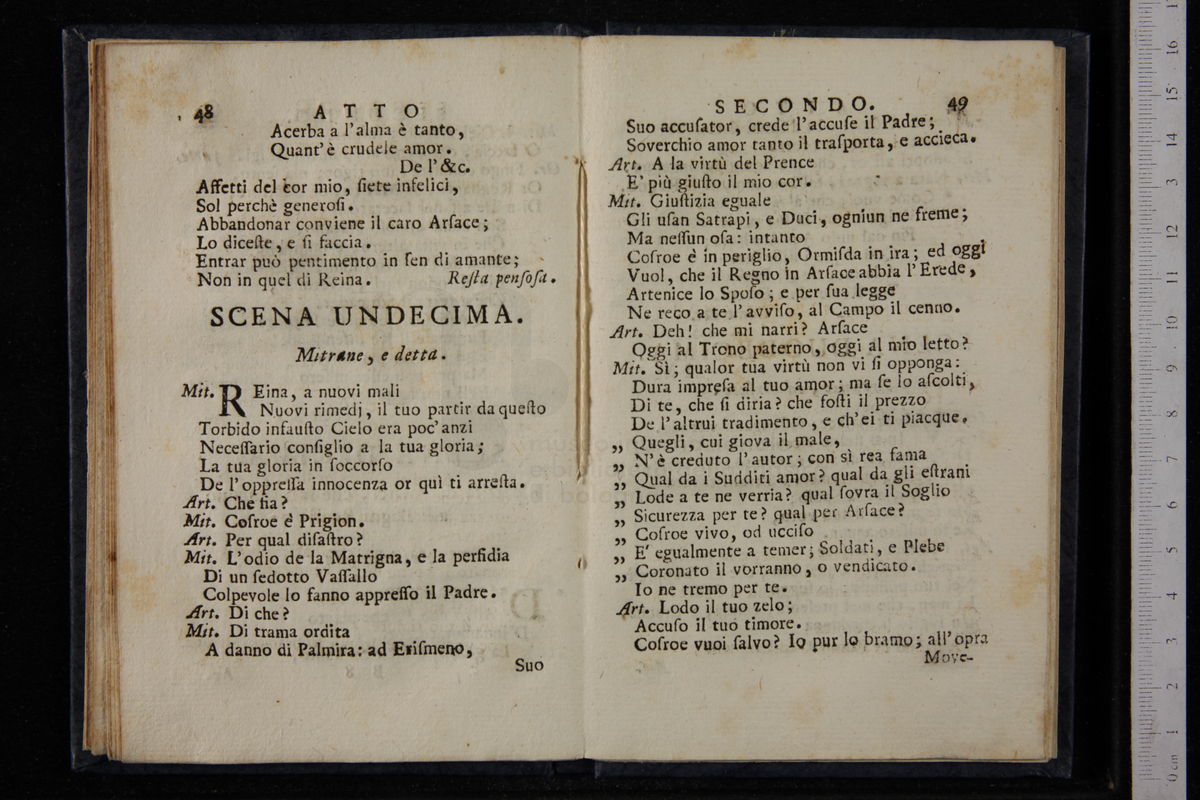 48 ATTO
Acerba a l'alma è tanto,
Quant'è crudele amor.
De l'&c.
Affetti del cor mio, ſiete infelici,
Sol perchè generoſi.
Abbandonar conviene il caro Arſace;
Lo diceſte, e ſi faccia.
Entrar può pentimento in ſen di amante;
Non in quel di Reina. Reſta penſoſa.
SCENA UNDECIMA.
Mitrane, e detta.
Mit. REina, a nuovi mali
Nuovi rimedj, il tuo partir da queſto
Torbido infauſto Cielo era poc'anzi
Neceſſario conſiglio a la tua gloria;
La tua gloria in ſoccorſo
De l'oppreſſa innocenza or quì ti arreſta.
Art. Che fia?
Mit. Coſroe è Prigion.
Art. Per qual diſaſtro?
Mit. L'odio de la Matrigna, e la perfidia
Di un ſedotto Vaſſallo
Colpevole lo fanno appreſſo il Padre.
Art. Di che?
Mit. Di trama ordita
A danno di Palmira: ad Eriſmeno,
Suo
SECONDO. 49
Suo accuſator, crede l'accuſe il Padre;
Soverchio amor tanto il traſporta, e accieca.
Art. A la virtù del Prence
E' più giuſto il mio cor.
Mit. Giuſtizia eguale
Gli uſan Satrapi, e Duci, ogniun ne freme;
Ma neſſun oſa: intanto
Coſroe è in periglio, Ormiſda in ira; ed oggi
Vuol, che il Regno in Arſace abbia l'Erede,
Artenice lo Spoſo; e per ſua legge
Ne reco a te l'avviſo, al Campo il cenno.
Art. Deh! che mi narri? Arſace
Oggi al Trono paterno, oggi al mio letto?
Mit. Sì; qualor tua virtù non vi ſi opponga:
Dura impreſa al tuo amor; ma ſe lo aſcolti,
Di te, che ſi diria? che foſti il prezzo
De l'altrui tradimento, e ch'ei ti piacque.
„ Quegli, cui giova il male,
„ N'è creduto l'autor; con sì rea fama
„ Qual da i Sudditi amor? qual da gli eſtrani
„ Lode a te ne verria? qual ſovra il Soglio
„ Sicurezza per te? qual per Arſace?
„ Coſroe vivo, od ucciſo
„ E' egualmente a temer; Soldati, e Plebe
„ Coronato il vorranno, o vendicato.
Io ne tremo per te.
Art. Lodo il tuo zelo;
Accuſo il tuo timore.
Coſroe vuoi ſalvo? Io pur lo bramo; all'opra
Move-